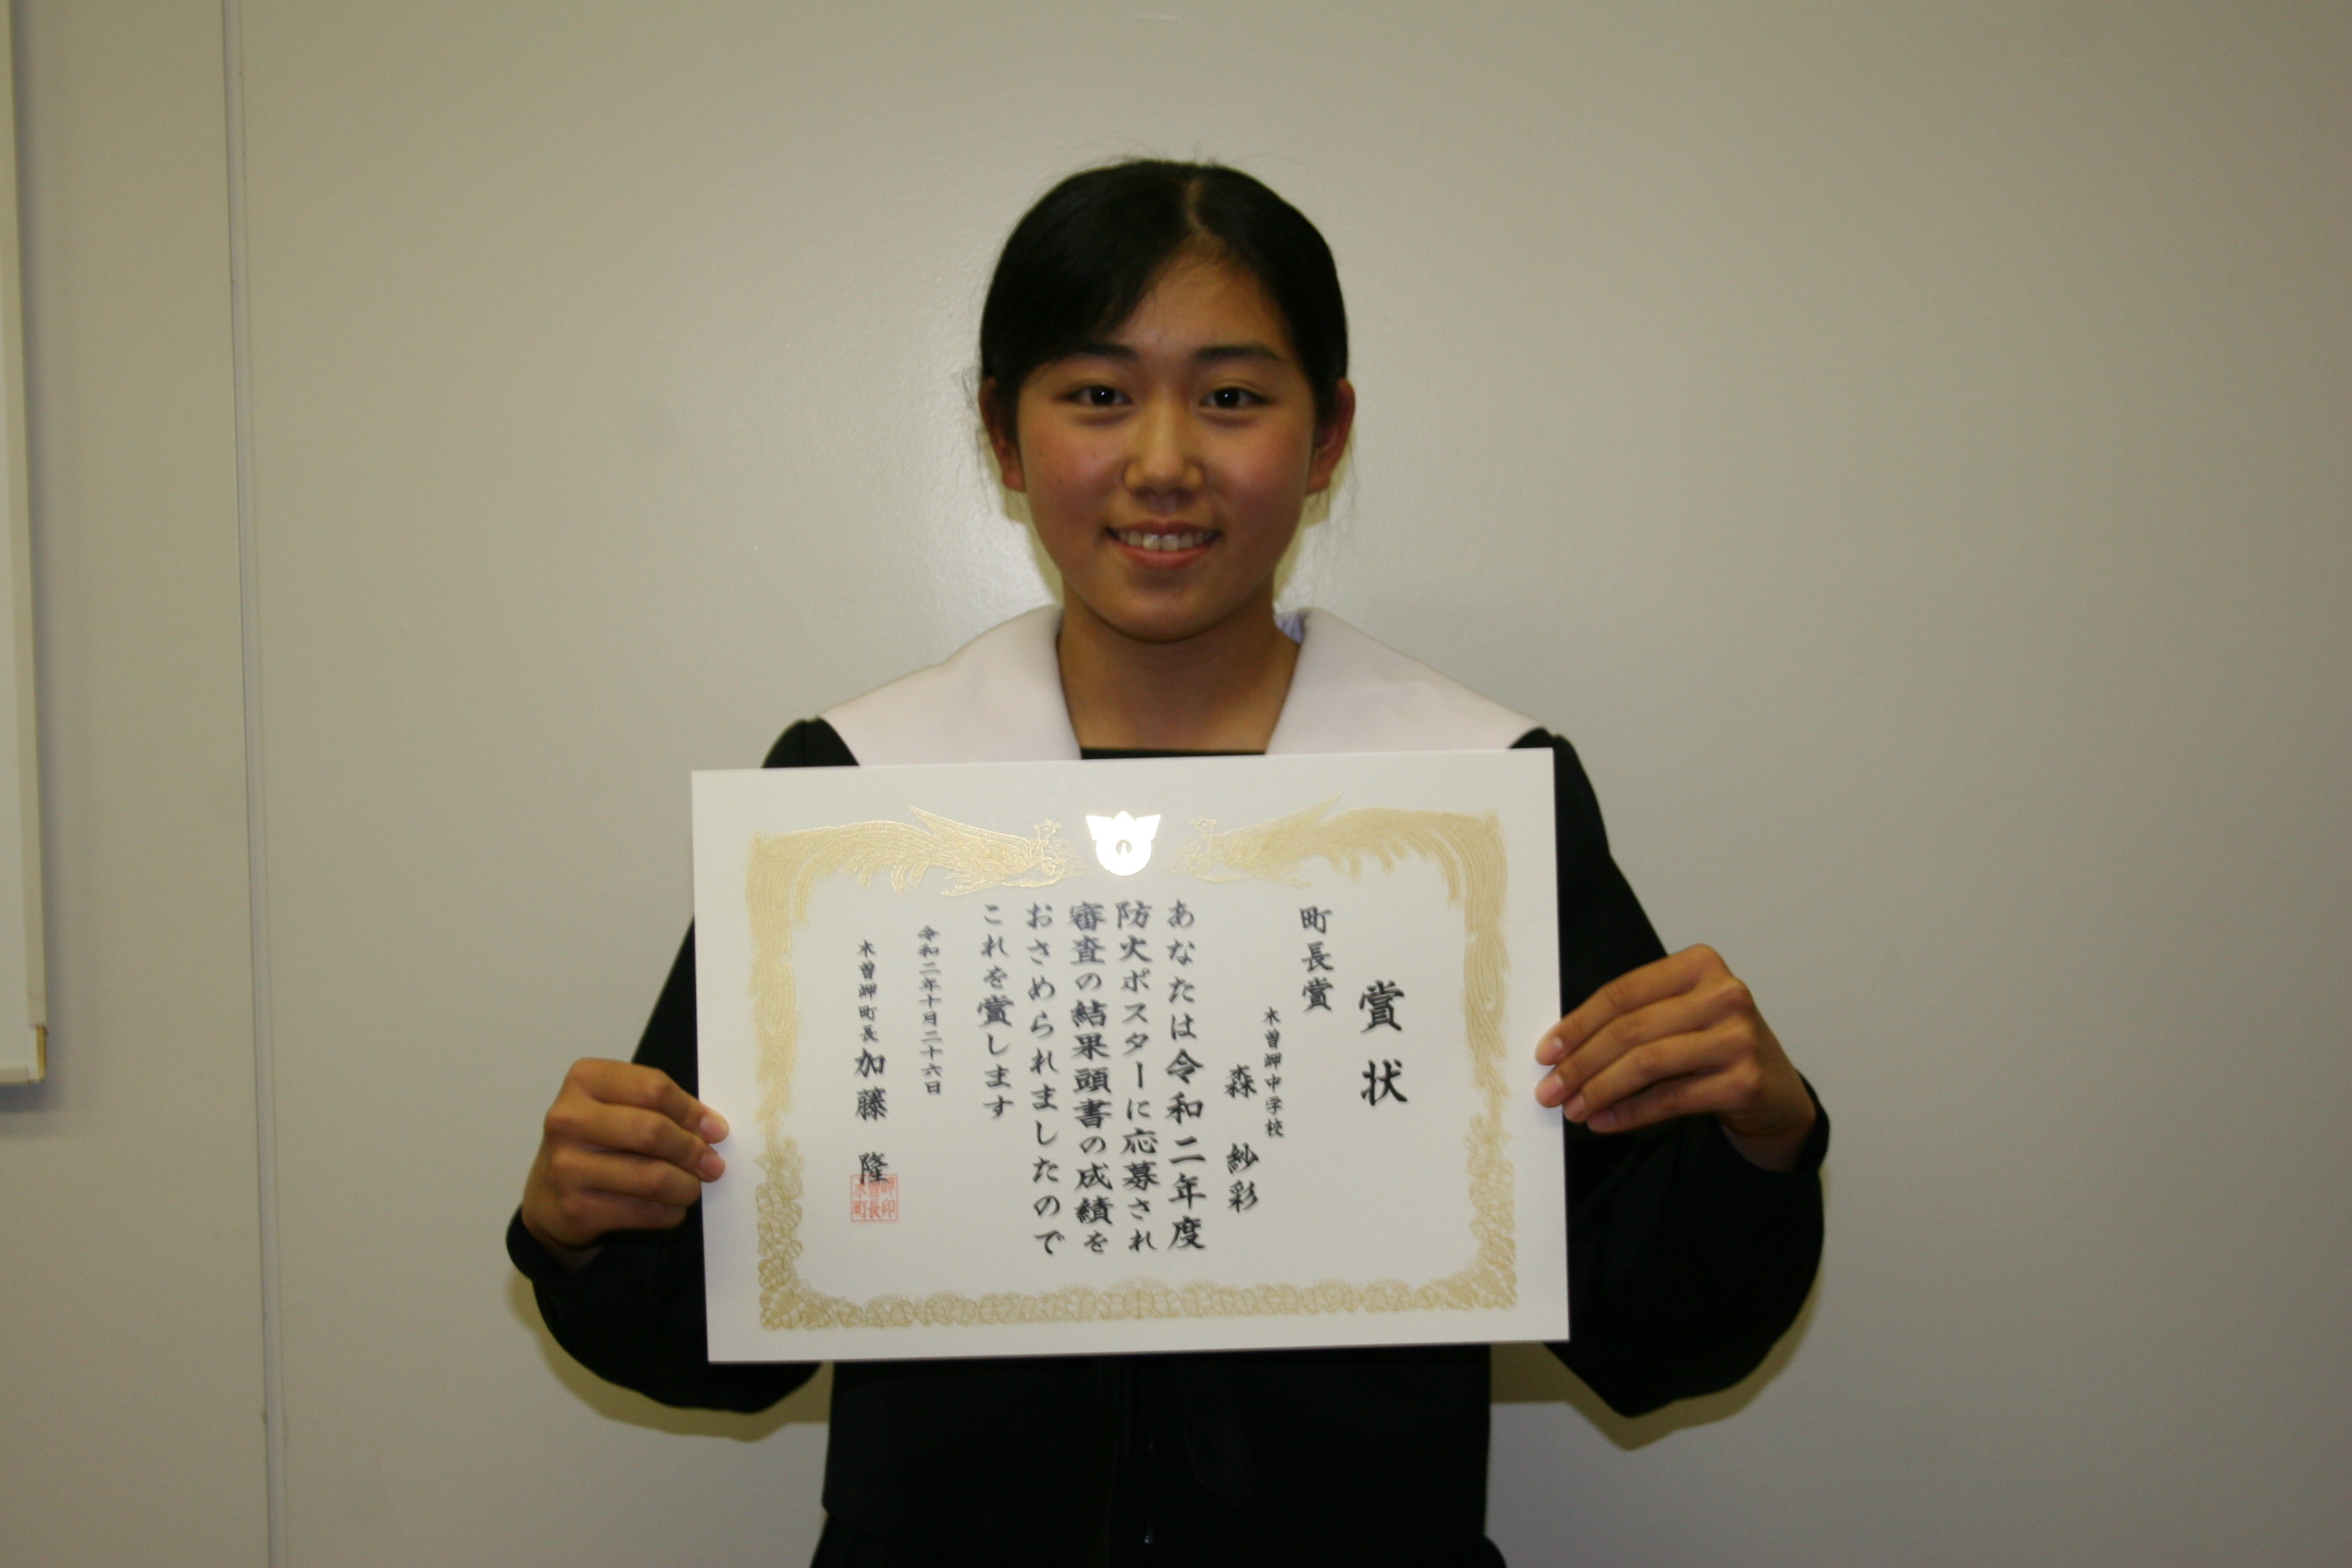 賞状
町長賞
木曽岬中学校
森 紗彩
あなたは令和二年度
防火ポスターに応募され
審査の結果頭書の成績を
おさめられましたので
これを賞します
令和二年十月二十六日
木曽岬町長 加藤 隆